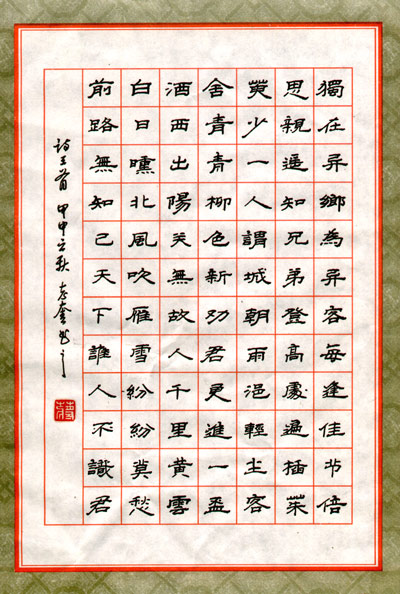 獨在异鄉為异客每逢佳节倍
思親遥知兄弟登高處遍插茱
萸少一人謂城朝雨浥輕尘客
舍青青柳色新劝君更進一盃
酒西出陽关無故人千里黄雲
白日曛北風吹雁雪紛紛莫愁
前路無知己天下誰人不識君
詩三首 甲申立秋 书